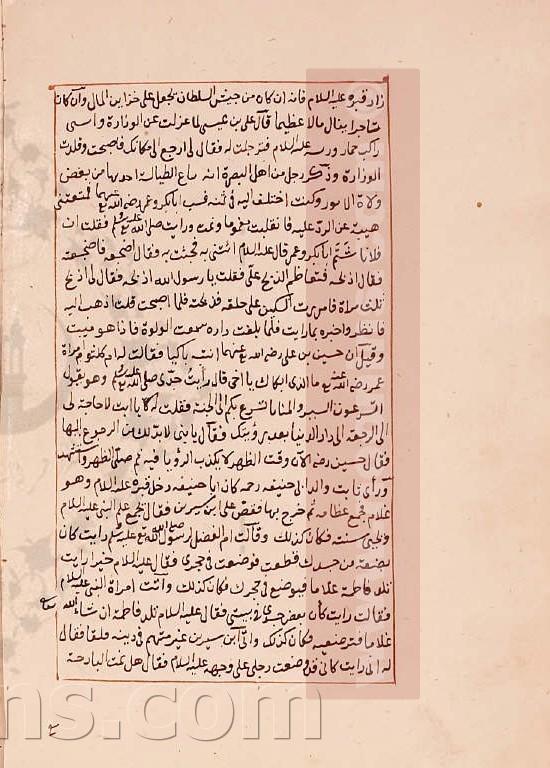 زار قبره عليه السلام فانه ان كان من جيش السلطان يجعل على خزاين المال وان كان
تاجرا ينال مالا عظيما قال على بن عيسى لما عزلت عن الوزارة رايتنى
راكب حمار ورسول الله عليه السلام فترجلت له فقال لى ارجع الى مكانك فاصبحت وقلدت
الوزارة وذكر رجل من اهل البصرة انه باع الطيالسة احديها من بعض
ولاة الامور وكنت اختلف اليه فى ثمنه فسب ابابكر وعمر رضى الله عنهما فمنعتنى
هيبته عن الرد عليه فانقلبت مغموما ونمت ورايت صلى الله عليه وسلم فقلت ان
فلانا شتم ابابكر وعمر قال عليه السلام ائتنى به فجئت به فقال اضجعه فاضجعته
فقال اذبحه فتعاظم الذبح على فقلت يا رسول الله اذبحه فقال لى اذبح
ثلث مراة فامررت السكين على حلقه فذبحته فلما اصبحت قلت اذهب اليه
فانظر واخبره بما رايت فلما بلغت داره سمعت الولولة فاذا هو ميت
وقيل ان حسين بن على رضى الله عنهما انتبه باكيا فقالت له ام كلثوم مراة
عمر رضى الله عنه ما الذى ابكاك يا اخى قال رايت جدى صلى الله عليه وسلم وهو يقول
اسرعوا السير والمنايا تسرع بكم الى الجنة فقلت له يا ابت لا حاجة لى
الى الرجعة الى دار الدنيا بعد رؤيتك فقال يا بنى لابد لك من الرجوع اليها
فقال حسين رضه الآن وقت الظهر لا يكذب الرؤيا فيه ثم صلى الظهر واستشهد
ورأى ثابت والد ابى حنيفه رحمه كان ابا حنيفه دخل قبره عليه السلام وهو
غلام فجمع عظامه ثم خرج بها فقص على ابن سيرين فقال يجمع علم النبى عليه السلام
ويحيى سنته فكان كذلك وقالت ام الفضل لرسول الله صلى الله عليه وسلم رايت كان
بضعة من جسدك قطعت فوضعت فى حجرى فقال عليه السلام خيرا رايت
تلد فاطمة غلاما فيوضع فى حجرك فكان كذلك واتت امراة النبى عليه السلام
فقالت رايت كأن بعض جسدى فى بيتى فقال عليه السلام تلد فاطمة ان شاء الله
غلاما فترضعيه فكان كذلك واتى ابن سيرين غير متهم فى دينه قلقا فقال
له انى رايت كانى قد وضعت رجلى على وجهه عليه السلام فقال هل نمت البارحة
ns.com